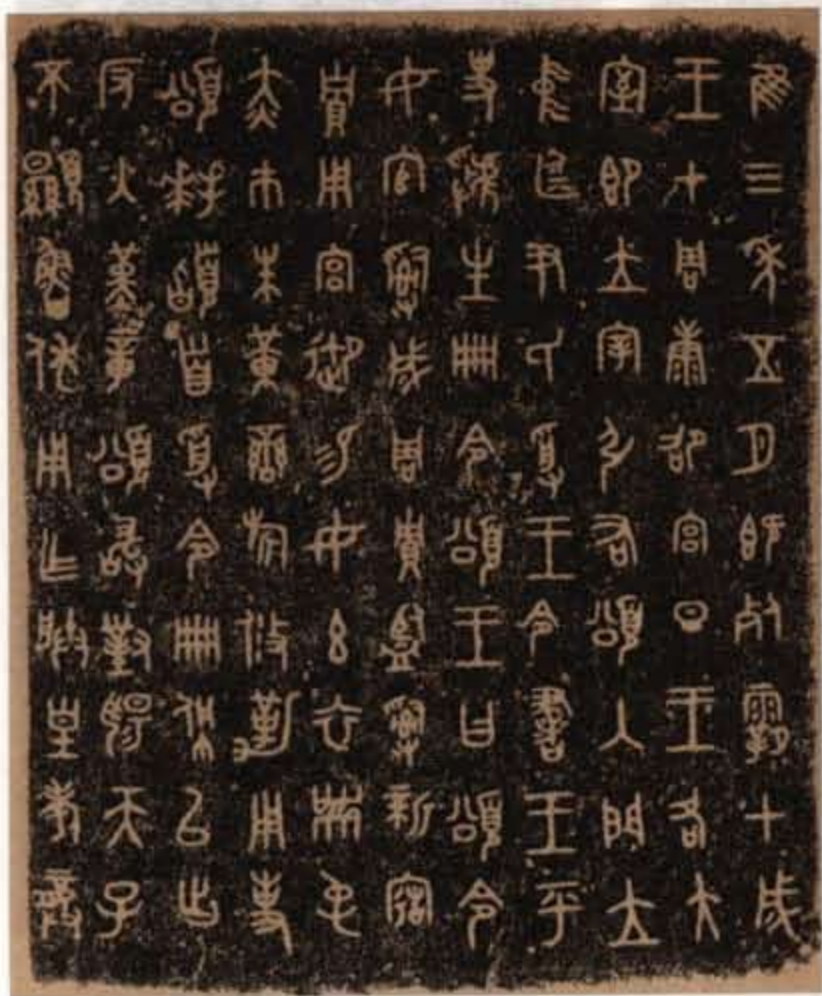 隹三年五月既死霸甲戌
王才周康卲宮旦王各大
室即立宰引右頌入門立
中廷尹氏受王令書王乎
史虢生冊令頌王曰頌令
女官𤔲成周貯監𤔲新造
貯用宮御易女玄衣黹屯
赤巿朱黃鑾旂攸勒用事
頌拜𩒨首受令冊佩以出
反入堇章頌敢對揚天子
不顯魯休用乍朕皇考龏